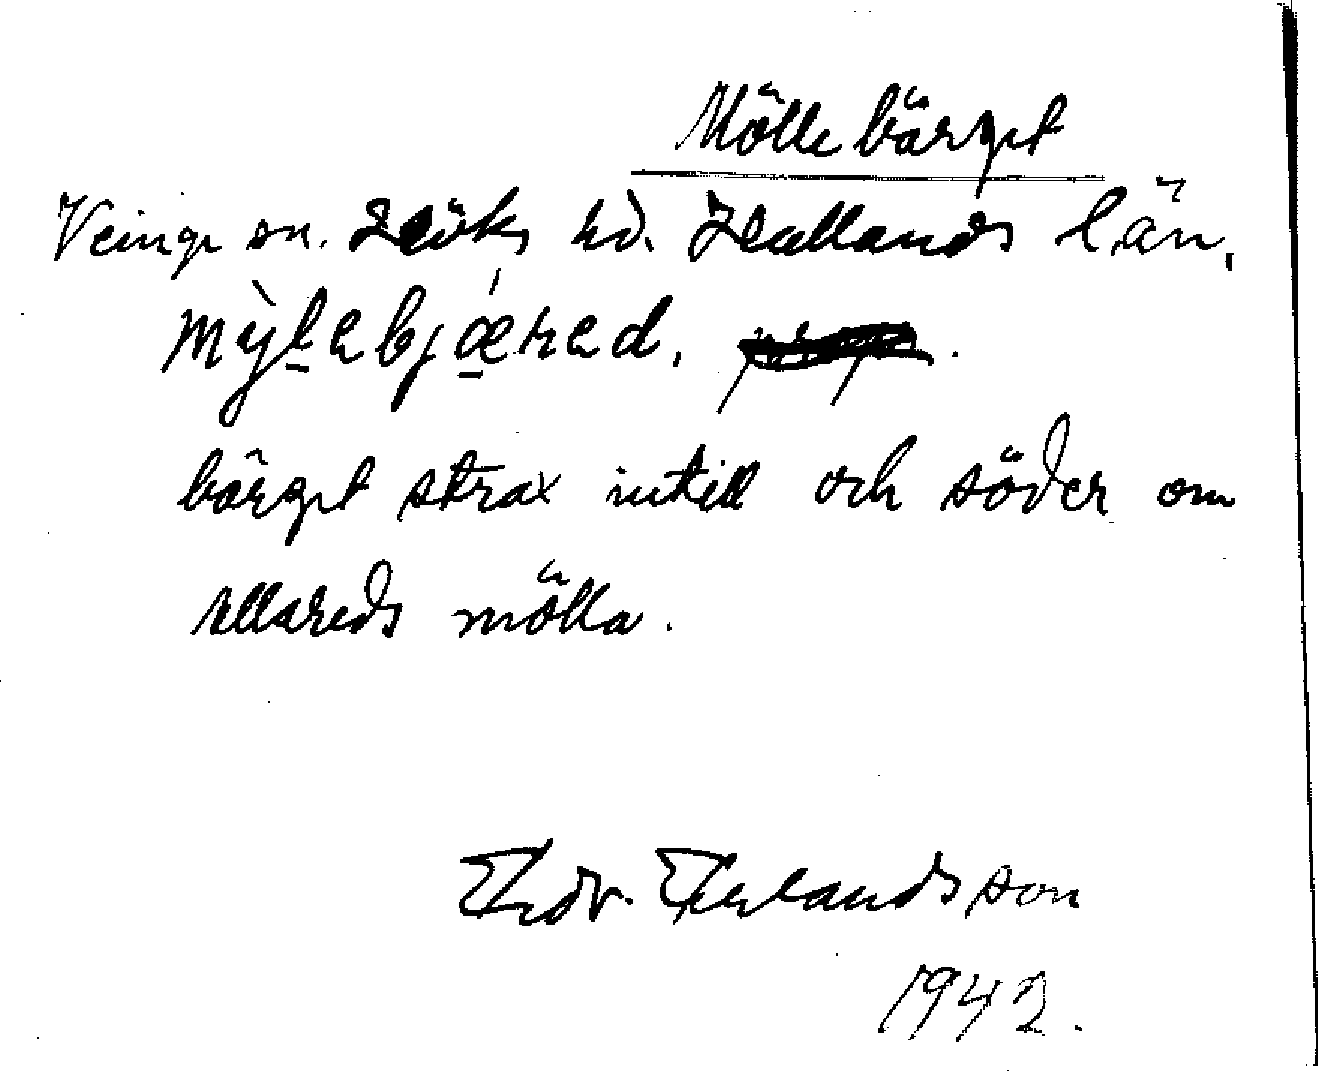 Möllebärget
Veinge sn. Höks hd. Hallands län.
mỳl̠ebjǽ̠red.
bärget strax intill och söder om
Allareds mölla.
Edv. Erlandsson
1942.